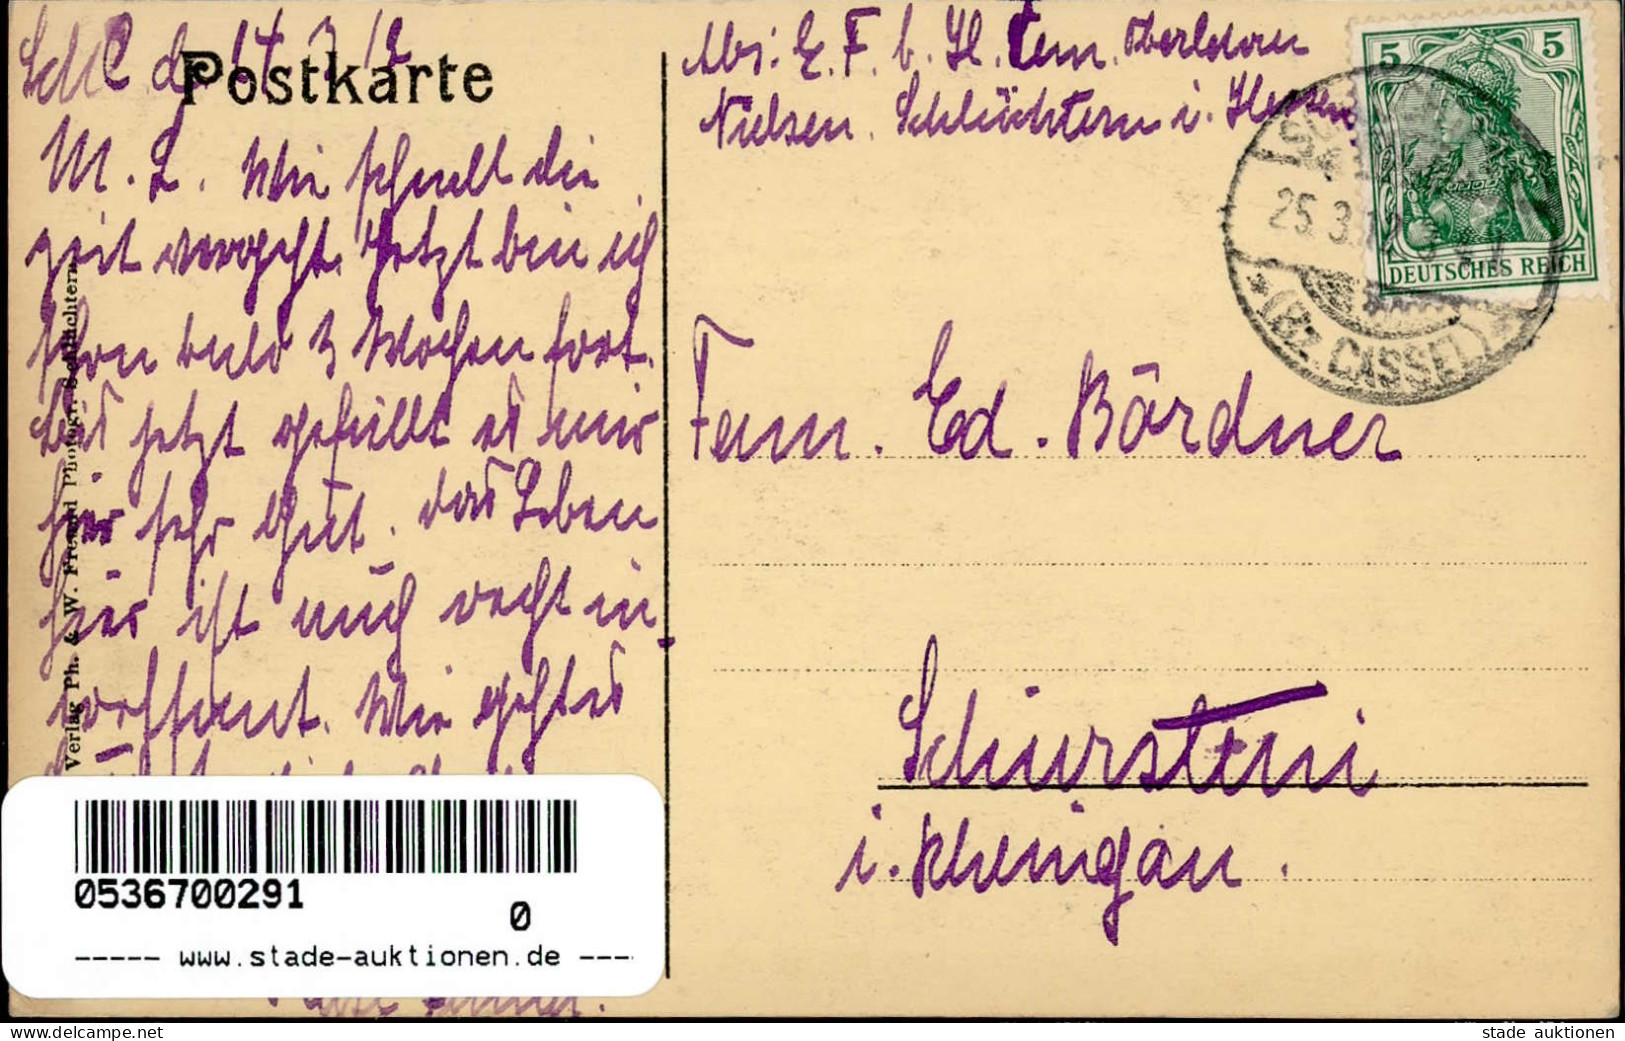 Postkarte
M. L. Wie schnell die
Zeit vergeht. Jetzt bin ich
schon bald 3 Wochen fort.
Bis jetzt gefällt es mir
hier sehr gut. Das Leben
hier ist auch recht in-
teressant. Wie geht es
Verlag Ph. & W. Freund Photogr. Schlüchtern
Abs: E. F. b. H.
Nielsen. Schlüchtern i. Hessen
5 5
DEUTSCHES REICH
25.3.12
*(Bz. CASSEL)*
Fam. Ed. Bördner
Schierstein
i. Rheingau.
0536700291
0
----- www.stade-auktionen.de ---
stade auktionen
www.delcampe.net